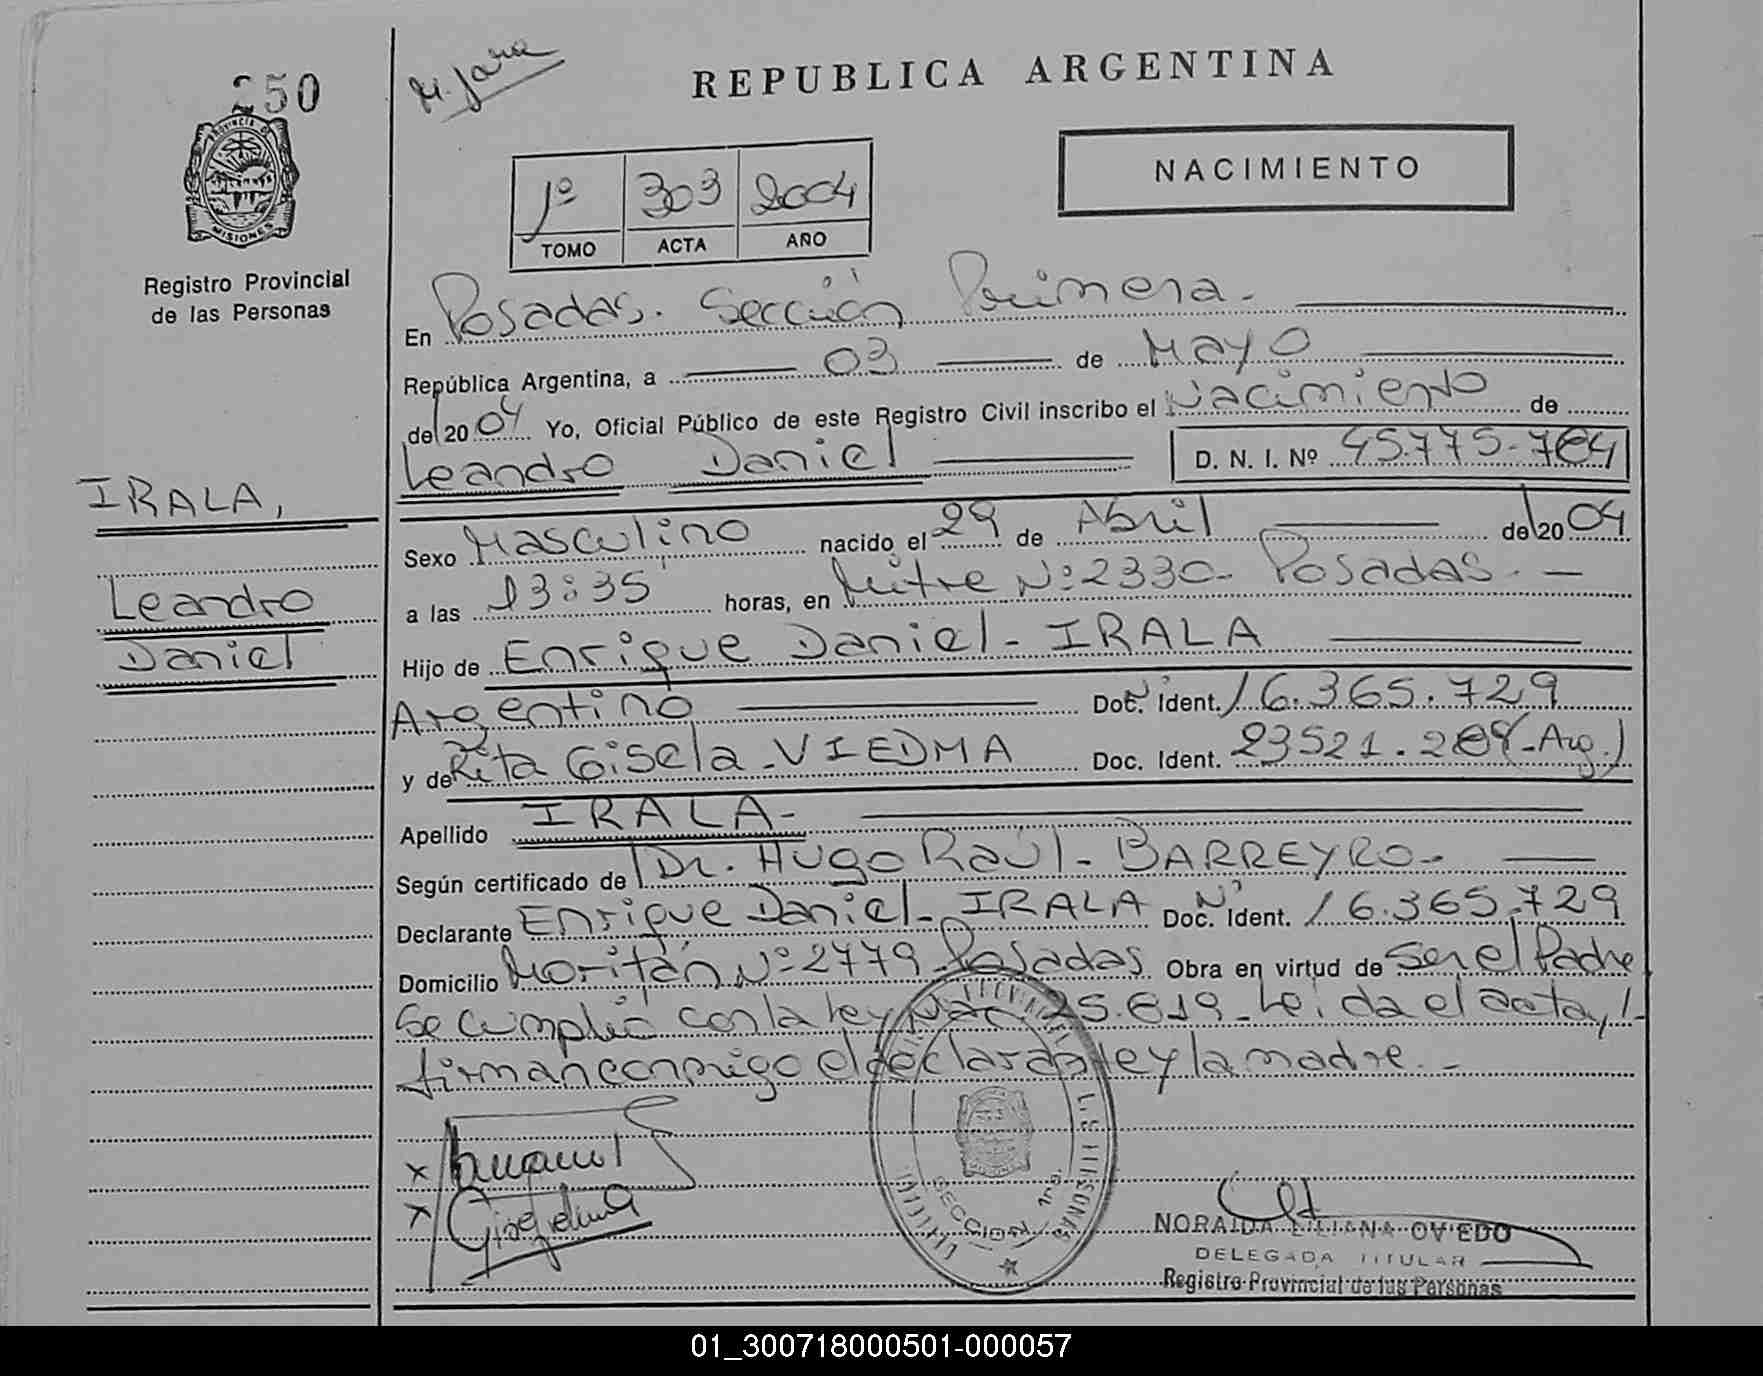 250
M. Jara
REPUBLICA ARGENTINA
PROVINCIA DE
MISIONES
Registro Provincial
de las Personas
1º 303 2004
TOMO ACTA AÑO
NACIMIENTO
En Posadas. Sección Primera.-
República Argentina, a 03 de Mayo
del 2004 Yo, Oficial Público de este Registro Civil inscribo el Nacimiento de
Leandro Daniel D. N. I. Nº 45.775.764
IRALA,
Leandro
Daniel
Sexo Masculino nacido el 29 de Abril del 2004
a las 13:35 horas, en Mitre Nº 2330- Posadas.-
Hijo de Enrique Daniel- IRALA
Argentino Doc. Nº Ident. 16.365.729
y de Rita Gisela-VIEDMA Doc. Ident. 23521.284(-Arg.)
Apellido IRALA-
Según certificado de Dr. Hugo Raúl- BARREYRO-
Declarante Enrique Daniel- IRALA Doc. Nº Ident. 16.365.729
Domicilio Moritán Nº 2779-Posadas Obra en virtud de Ser el Padre
Se cumplió con la ley Nac. 25.819- Leída el acta, /-
firman conmigo el declarante y la madre.-
SECCION 1ra.
NORAIDA LILIANA OVIEDO
DELEGADA TITULAR
Registro Provincial de las Personas
01_300718000501-000057